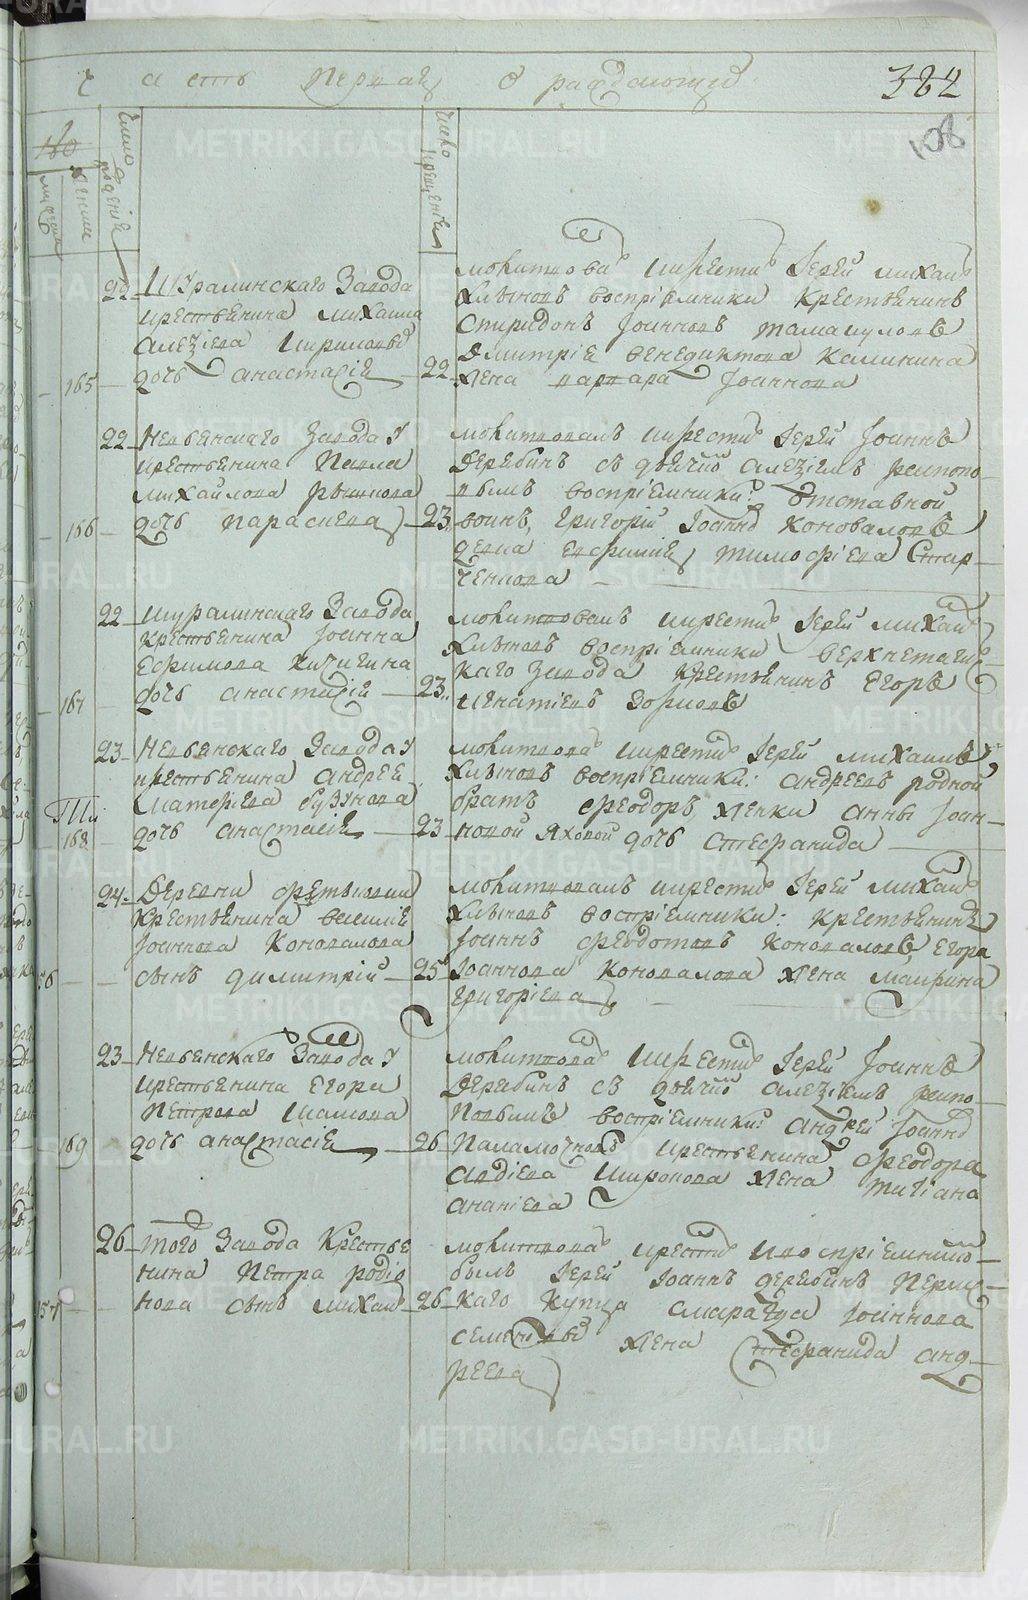 Часть первая о раждающихся
382
108
№
мужеска
женска
Число рожденiя
Число крещенiя
22 Шуралинскаго Завода
крестьянина Михаила
Алезiева Ширилова
165 дочь Анастасiя 22
молитвова и крестил Iерей Михаил
Хлыновъ воспрiемники крестьянинъ
Спиридонъ Iоанновъ
Дмитрiя Венедиктова Калинина
жена Варвара Iоаннова
22 Невьянскаго Завода у
крестьянина Павла
Михайлова
166 дочь Параскева 23
молитвовалъ и крестил Iерей Iоаннъ
Дерябинъ съ дьячко Алезiемъ репопо-
вымъ воспрiемники: отставной
воинъ, Григорiй Iоанно Коноваловъ
девка Евфимiя Тимофiева Стар-
ченкова
22 Шуралинскаго Завода
крестьянина Iоанна
Ефимова Кичигина
167 дочь Анастасiя 23
молитвовалъ и крестил Iерей Михаил
Хлыновъ воспрiемники Верхнетагил-
каго Завода крестьянинъ Егоръ
Игнатiевъ Зорловъ
23 Невьянскаго Завода у
крестьянина Андрея
Матфiева Бузунова
168 дочь Анастасiя 23
молитвова и крестил Iерей Михаилъ
Хлыновъ воспрiемники: Андреевъ родной
братъ Феодоръ, женки Анны Iоан-
новой Яховой дочь Стефанида
24 Деревни Фетьковки
крестьянина Василiя
Iоаннова Коновалова
56 сынъ Димитрiй 25
молитвовалъ и крестил Iерей Михаил
Хлыновъ воспрiемники: крестьянинъ
Iоаннъ Феодотовъ Коноваловъ, Егора
Iоаннова Коновалова жена Маврина
Григорiева
23 Невьянскаго Завода у
крестьянина Егора
Петрова Шамова
169 дочь Анастасiя 26
молитвова и крестил Iерей Iоаннъ
Дерябинъ съ дьячко Алезiемъ репо-
повымъ воспрiемники: Андрей Iоанно
Паламочновъ крестьянина Феодора
Авдiева Широкова жена Татiана
Ананiева
26 того Завода Крестья
нина Петра Родiо
57 нова сынъ Михаил 26
молитвова крестил и воспрiемнико
былъ Iерей Iоаннъ Дерябинъ Перм-
каго Купца Смарагда Iоаннова
Семенова жена Стефанида Анд-
реева